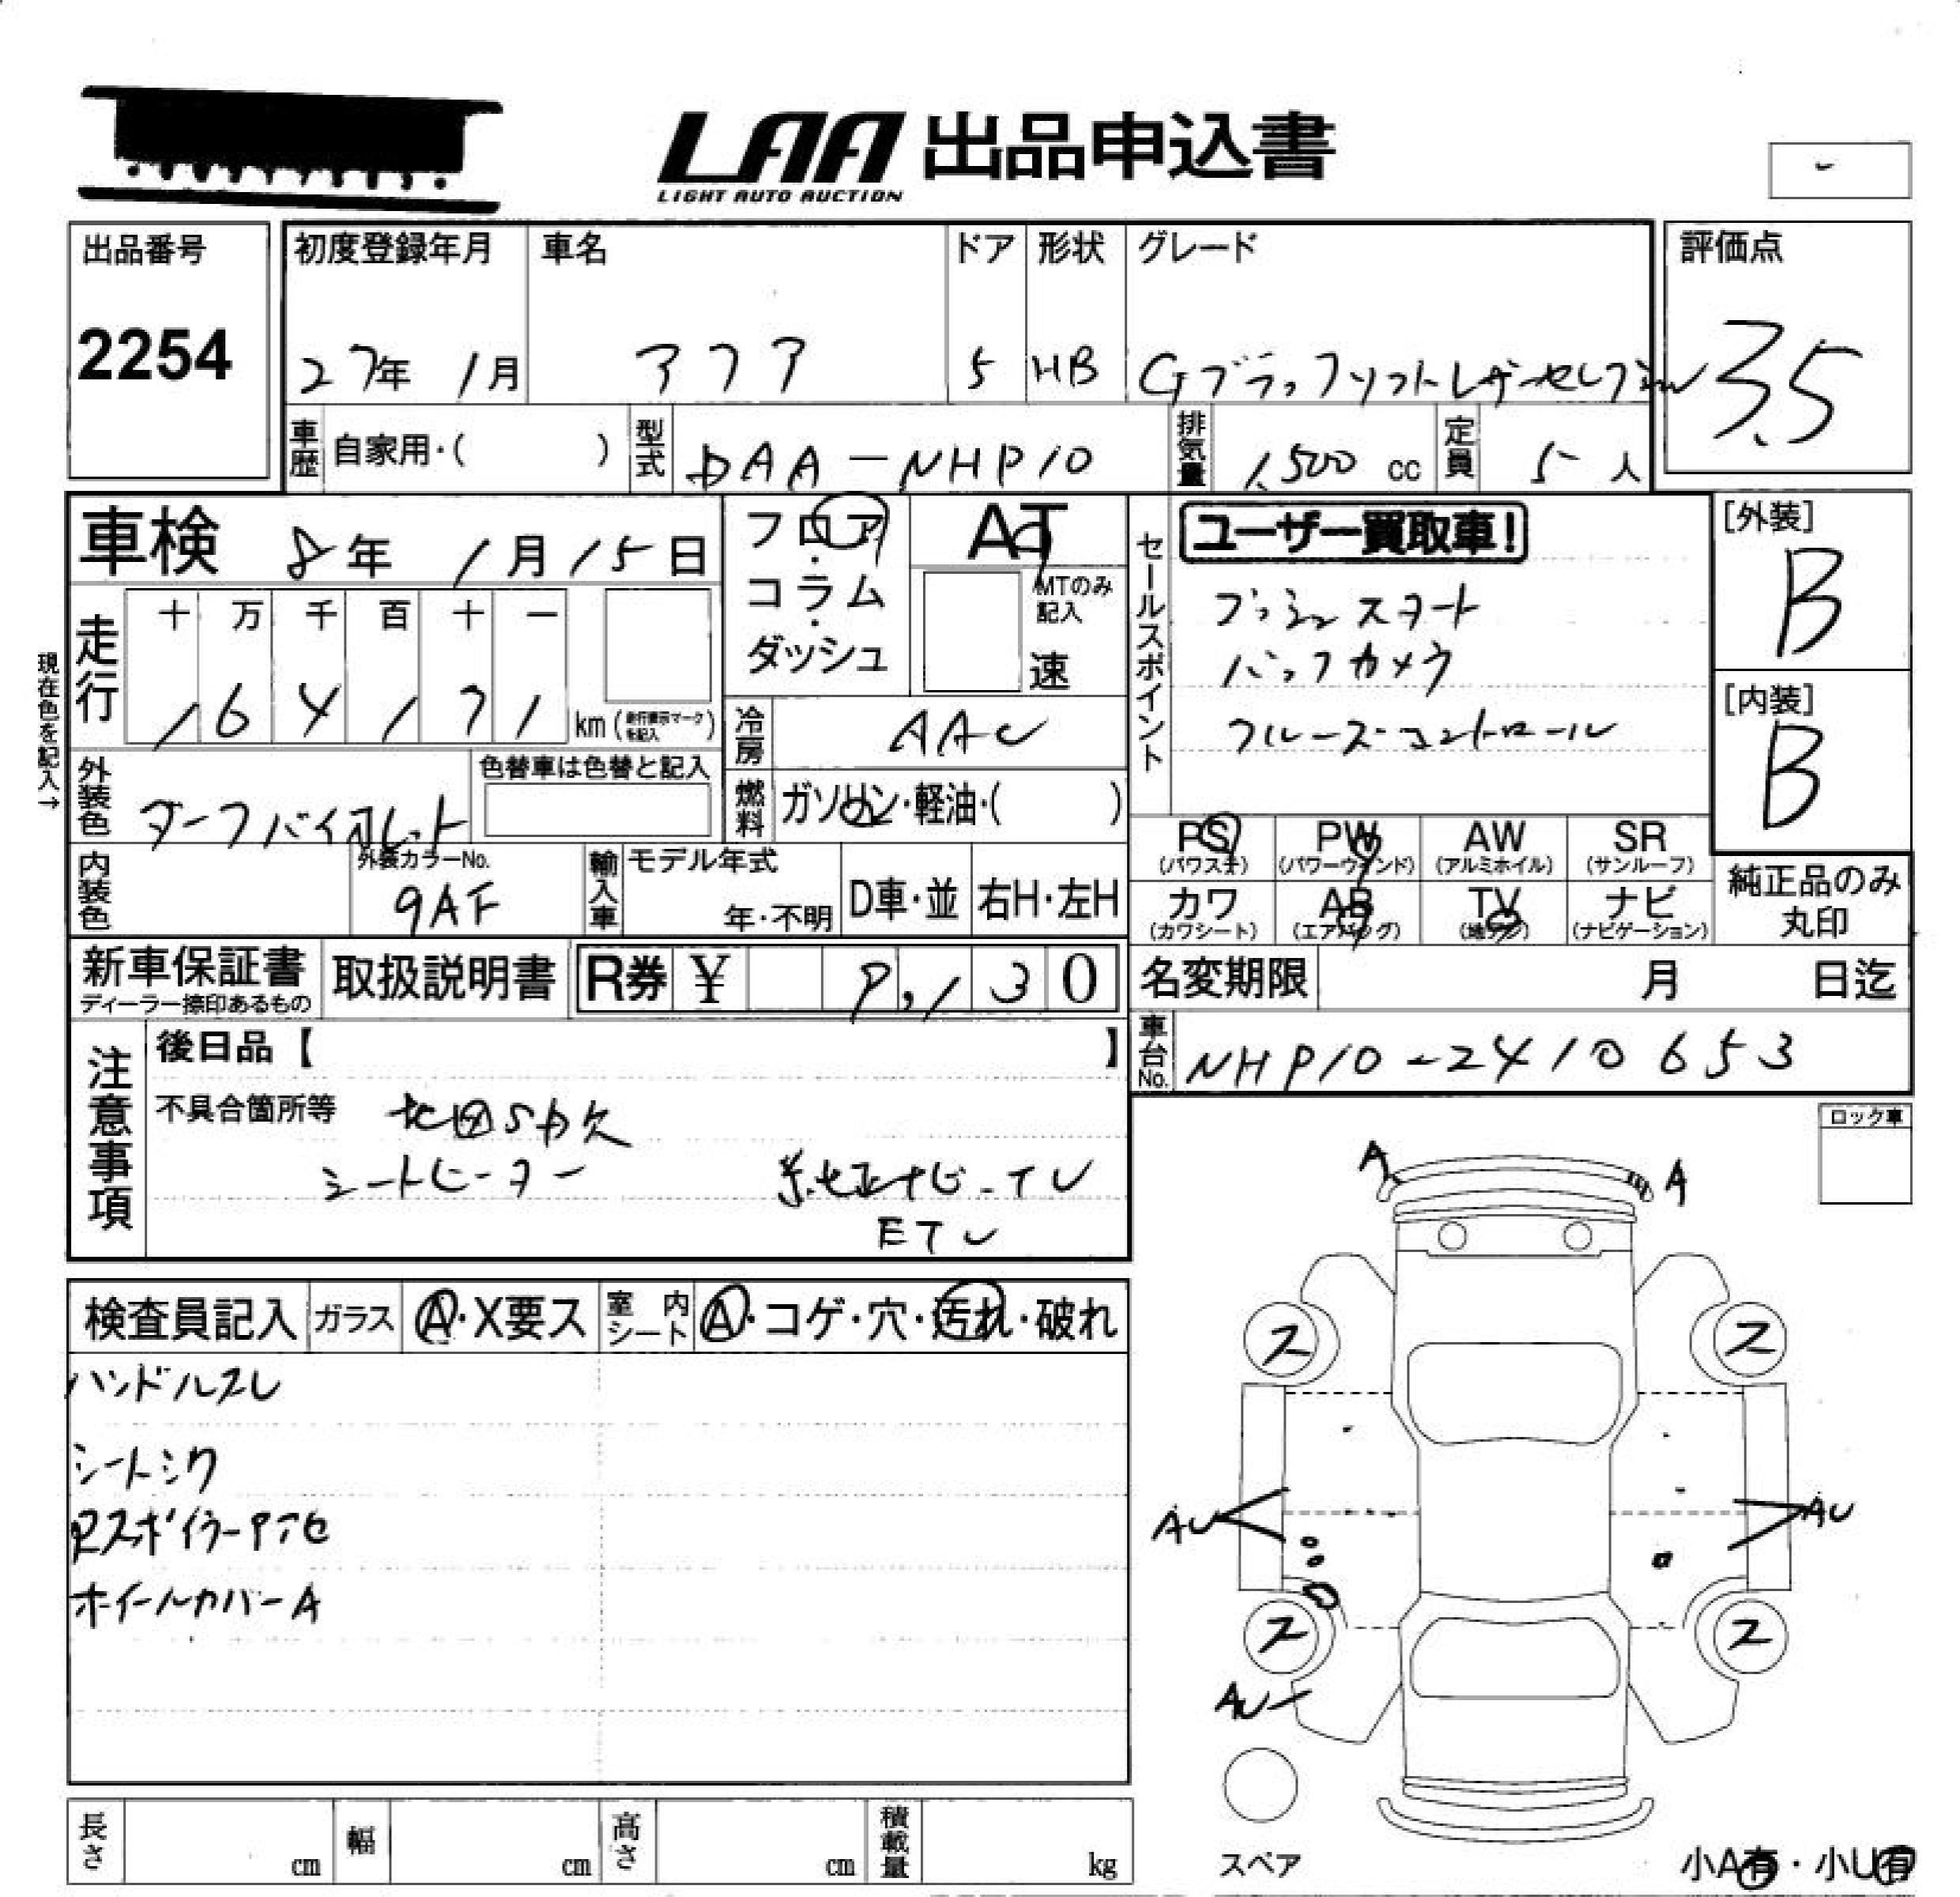 LAA 出品申込書
LIGHT AUTO AUCTION
出品番号
2254
初度登録年月
27年 1月
車名
アクア
ドア
5
形状
HB
グレード
Gブラックソフトレザーセレクション
評価点
3.5
車歴
自家用・( )
型式
DAA-NHP10
排気量
1,500 cc
定員
5人
車検 8年 1月15日
走行
十 万 千 百 十 一
1 6 4 1 7 1 km (走行表示マークを記入)
現在色を記入→
外装色
ダークバイオレット
色替車は色替と記入
内装色
外装カラーNo.
9AF
輸入車
モデル年式
年・不明
D車・並
右H・左H
フロア・
コラム・
ダッシュ
AT
MTのみ記入
速
冷房
AAC
燃料
ガソリン・軽油・( )
セールスポイント
ユーザー買取車!
プッシュスタート
バックカメラ
クルーズコントロール
[外装]
B
[内装]
B
PS (パワステ)
PW (パワーウィンド)
AW (アルミホイル)
SR (サンルーフ)
カワ (カワシート)
AB (エアバッグ)
TV (地デジ)
ナビ (ナビゲーション)
純正品のみ
丸印
新車保証書
ディーラー捺印あるもの
取扱説明書
R券 ¥ 9,130
名変期限 月 日迄
車台No.
NHP10-2410653
注意事項
後日品【 】
不具合箇所等 地図SD欠
シートヒーター 純正ナビ-TV
ETC
ロック車
検査員記入
ガラス
A・X要ス
室内シート
A・コゲ・穴・汚れ・破れ
ハンドルスレ
シートシワ
Rスポイラーアセ
ホイールカバーA
A A
ス ス
AU AU
ス ス
AU
スペア
小A有・小U有
長さ cm
幅 cm
高さ cm
積載量 kg